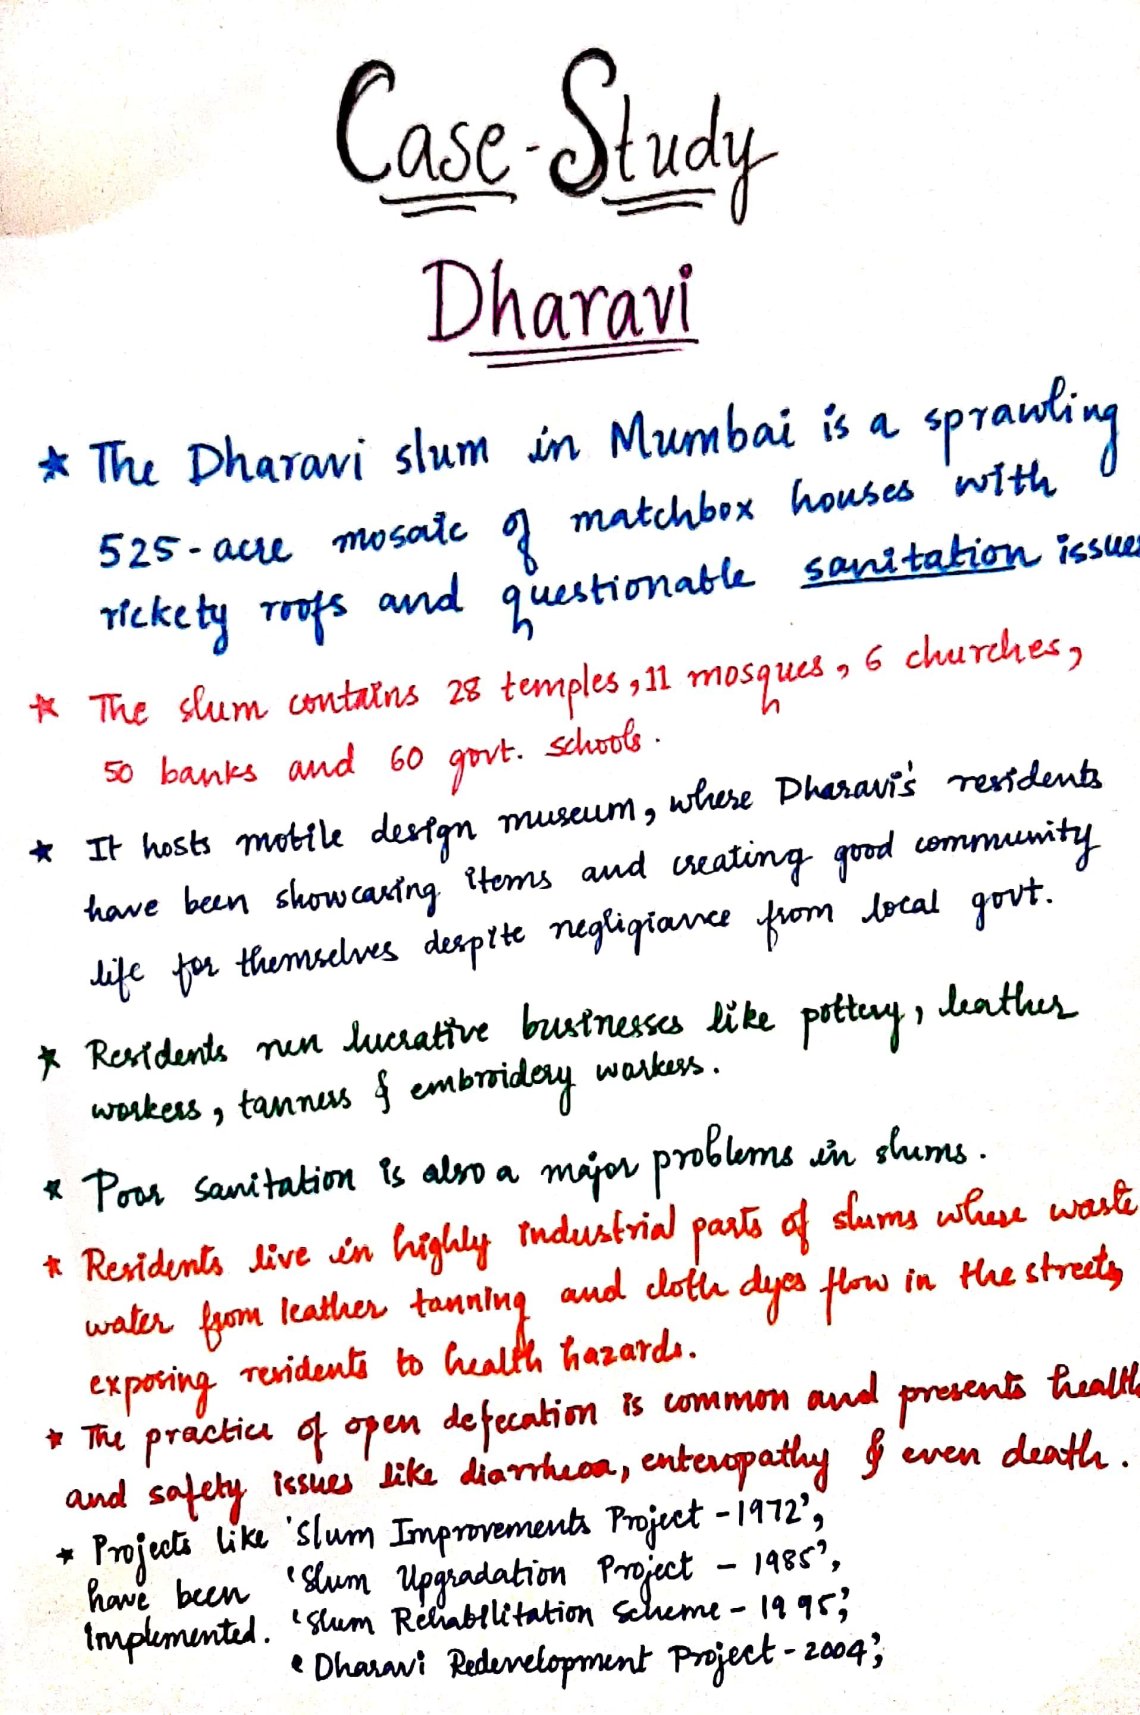 Case-Study
Dharavi
* The Dharavi slum in Mumbai is a sprawling
525-acre mosaic of matchbox houses with
rickety roofs and questionable sanitation issues
* The slum contains 28 temples, 11 mosques, 6 churches,
50 banks and 60 govt. schools.
* It hosts mobile design museum, where Dharavi's residents
have been showcasing items and creating good community
life for themselves despite negligiance from local govt.
* Residents run lucrative businesses like pottery, leather
workers, tanners & embroidery workers.
* Poor sanitation is also a major problems in slums.
* Residents live in highly industrial parts of slums where waste
water from leather tanning and cloth dyes flow in the streets,
exposing residents to health hazards.
* The practice of open defecation is common and presents health
and safety issues like diarrheoa, enteropathy & even death.
* Projects like 'Slum Improvements Project - 1972',
have been 'Slum Upgradation Project - 1985',
implemented. 'Slum Rehabilitation Scheme - 1995',
'Dharavi Redevelopment Project - 2004',